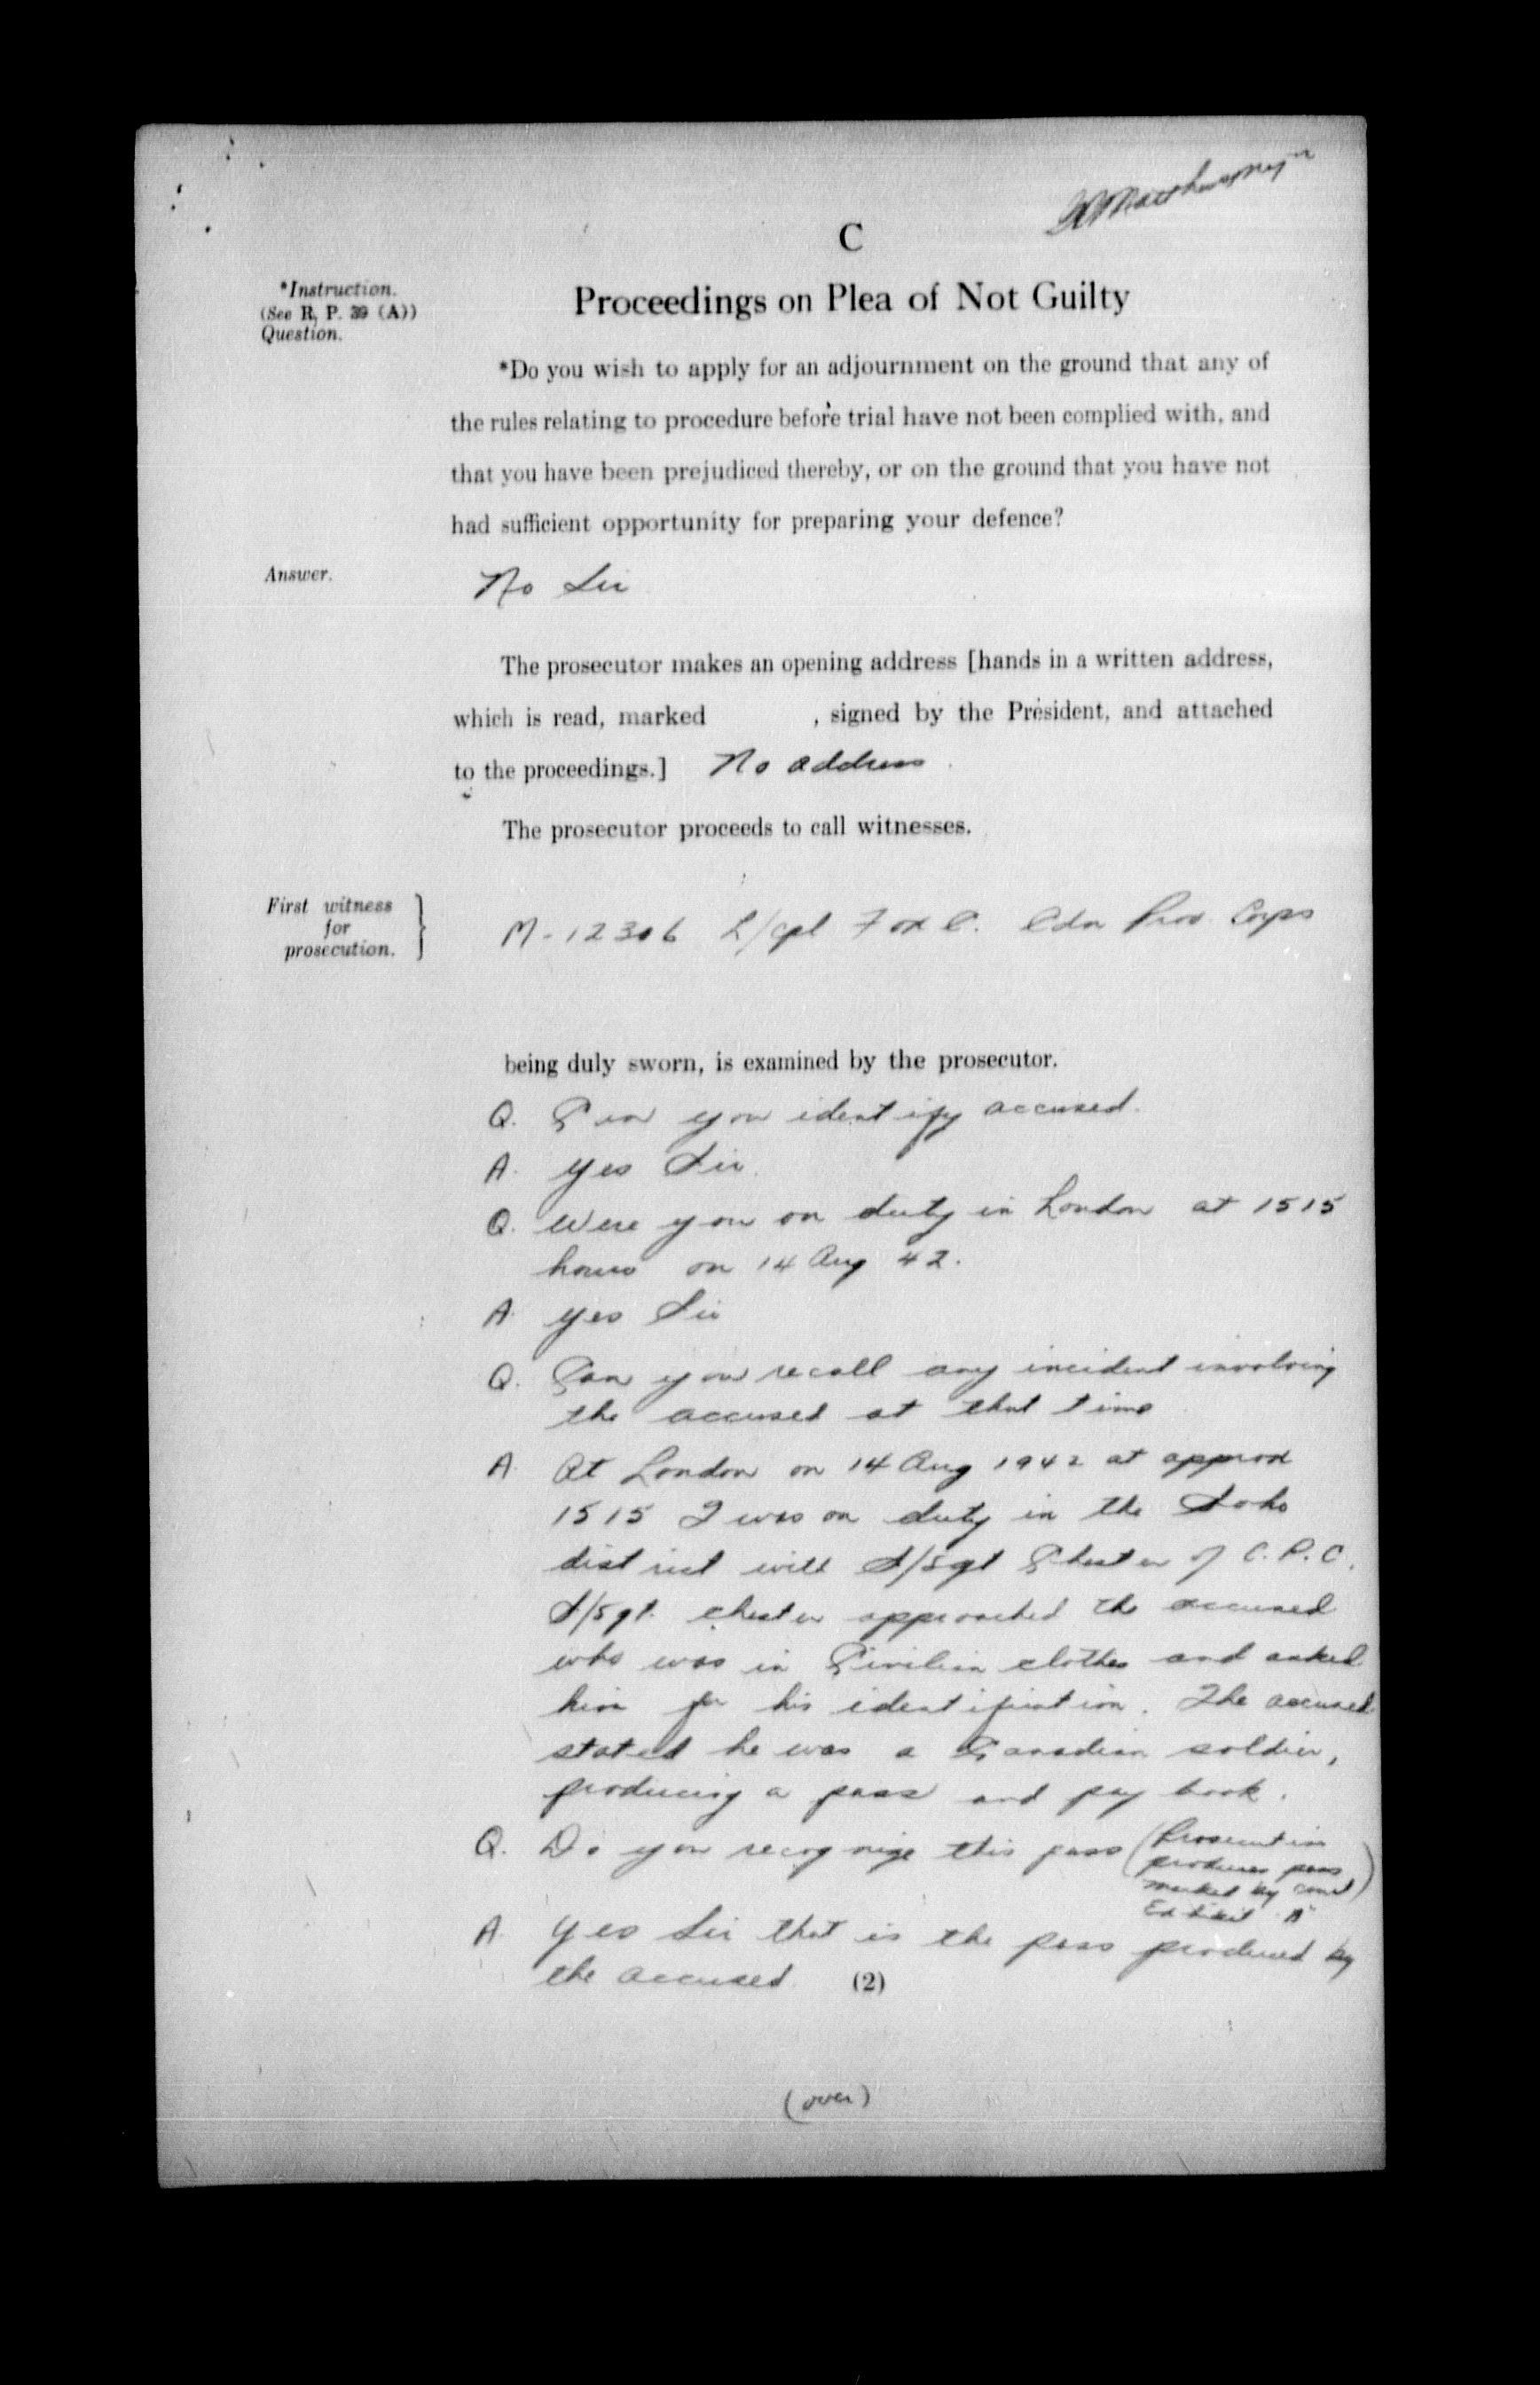 C
*Instruction.
(See R. P. 39 (A))
Question.
Proceedings on Plea of Not Guilty
*Do you wish to apply for an adjournment on the ground that any of
the rules relating to procedure before trial have not been complied with, and
that you have been prejudiced thereby, or on the ground that you have not
had sufficient opportunity for preparing your defence?
Answer.
No Sir
The prosecutor makes an opening address [hands in a written address,
which is read, marked , signed by the President, and attached
to the proceedings.] No address
The prosecutor proceeds to call witnesses.
First witness
for
prosecution.
M-12306 L/Cpl Fox C. Cdn Prov. Corps
being duly sworn, is examined by the prosecutor.
Q. Can you identify accused.
A. Yes Sir.
Q. Were you on duty in London at 1515
hours on 14 Aug 42.
A. Yes Sir
Q. Can you recall any incident involving
the accused at that time
A. At London on 14 Aug 1942 at approx
1515 I was on duty in the Soho
district with S/Sgt Chester of C.P.C.
S/Sgt. Chester approached the accused
who was in Civilian clothes and asked
him for his identification. The accused
stated he was a Canadian soldier,
producing a pass and pay book.
Q. Do you recognize this pass (Prosecution
produces pass
marked by court)
Exhibit "A"
A. Yes Sir that is the pass produced by
the accused.
(2)
(over)